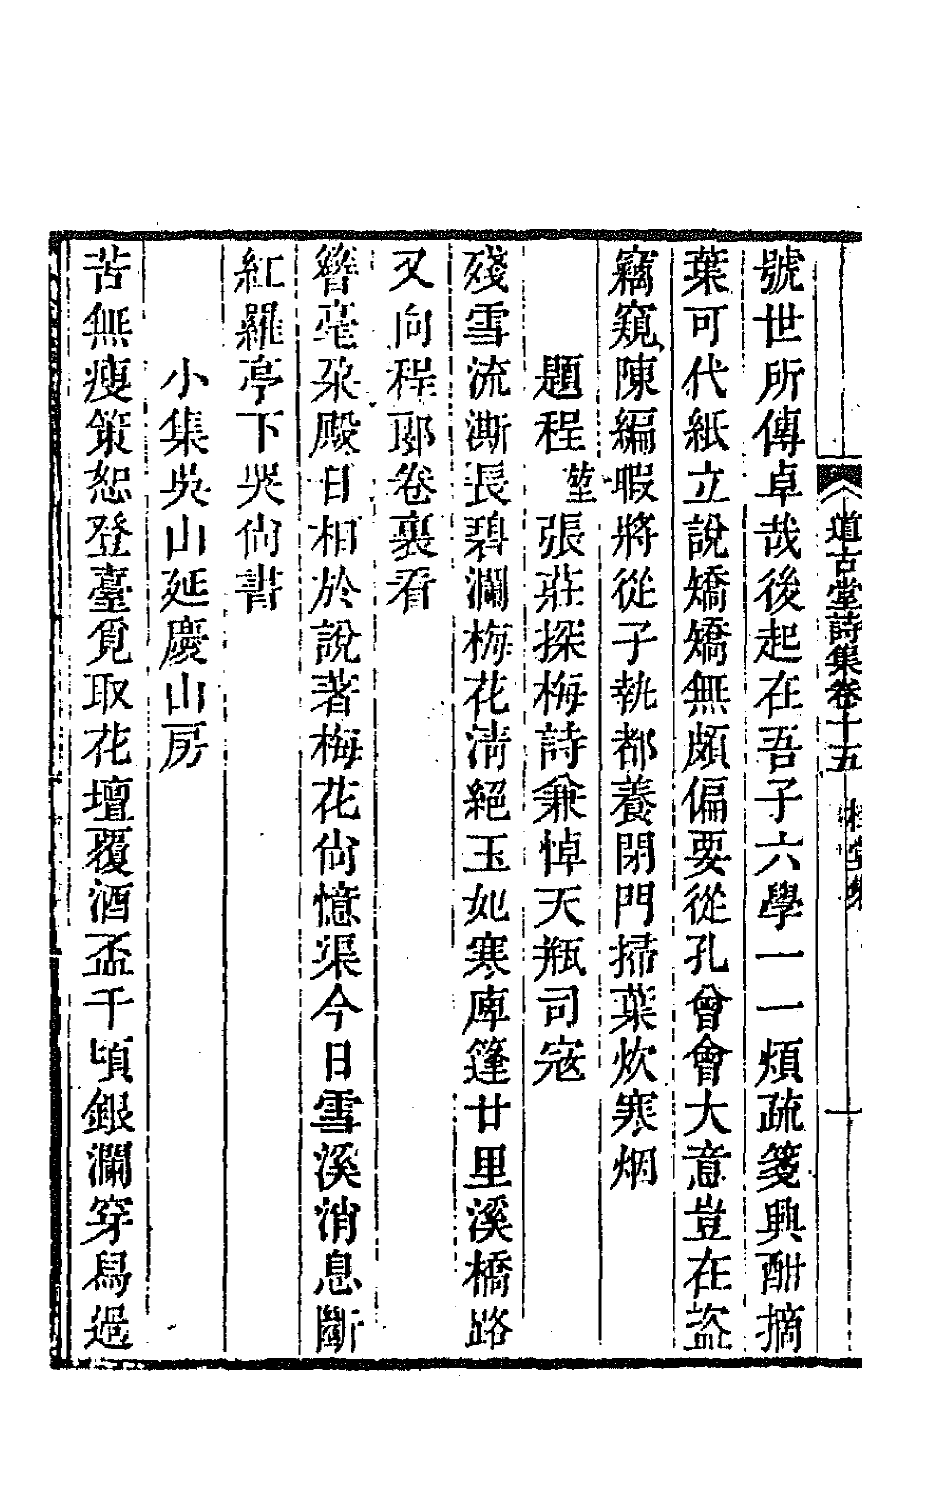 道古堂詩集卷十五
號世所傳卓哉後起在吾子六學一一煩疏箋興酣摘
葉可代紙立說矯矯無頗偏要從孔曾會大意豈在盜
竊窺陳編暇將從子執都養閉門掃葉炊寒烟
題程堃張莊探梅詩兼悼天瓶司寇
殘雪流澌長碧瀾梅花淸絕玉如寒庳篷廿里溪橋路
又向程郞卷裏看
簪毫朶殿日相於說著梅花尙憶渠今日雪溪消息斷
紅羅亭下哭尙書
小集吳山延慶山房
苦無瘦策恕登臺覓取花壇覆酒盃千頃銀瀾穿鳥過